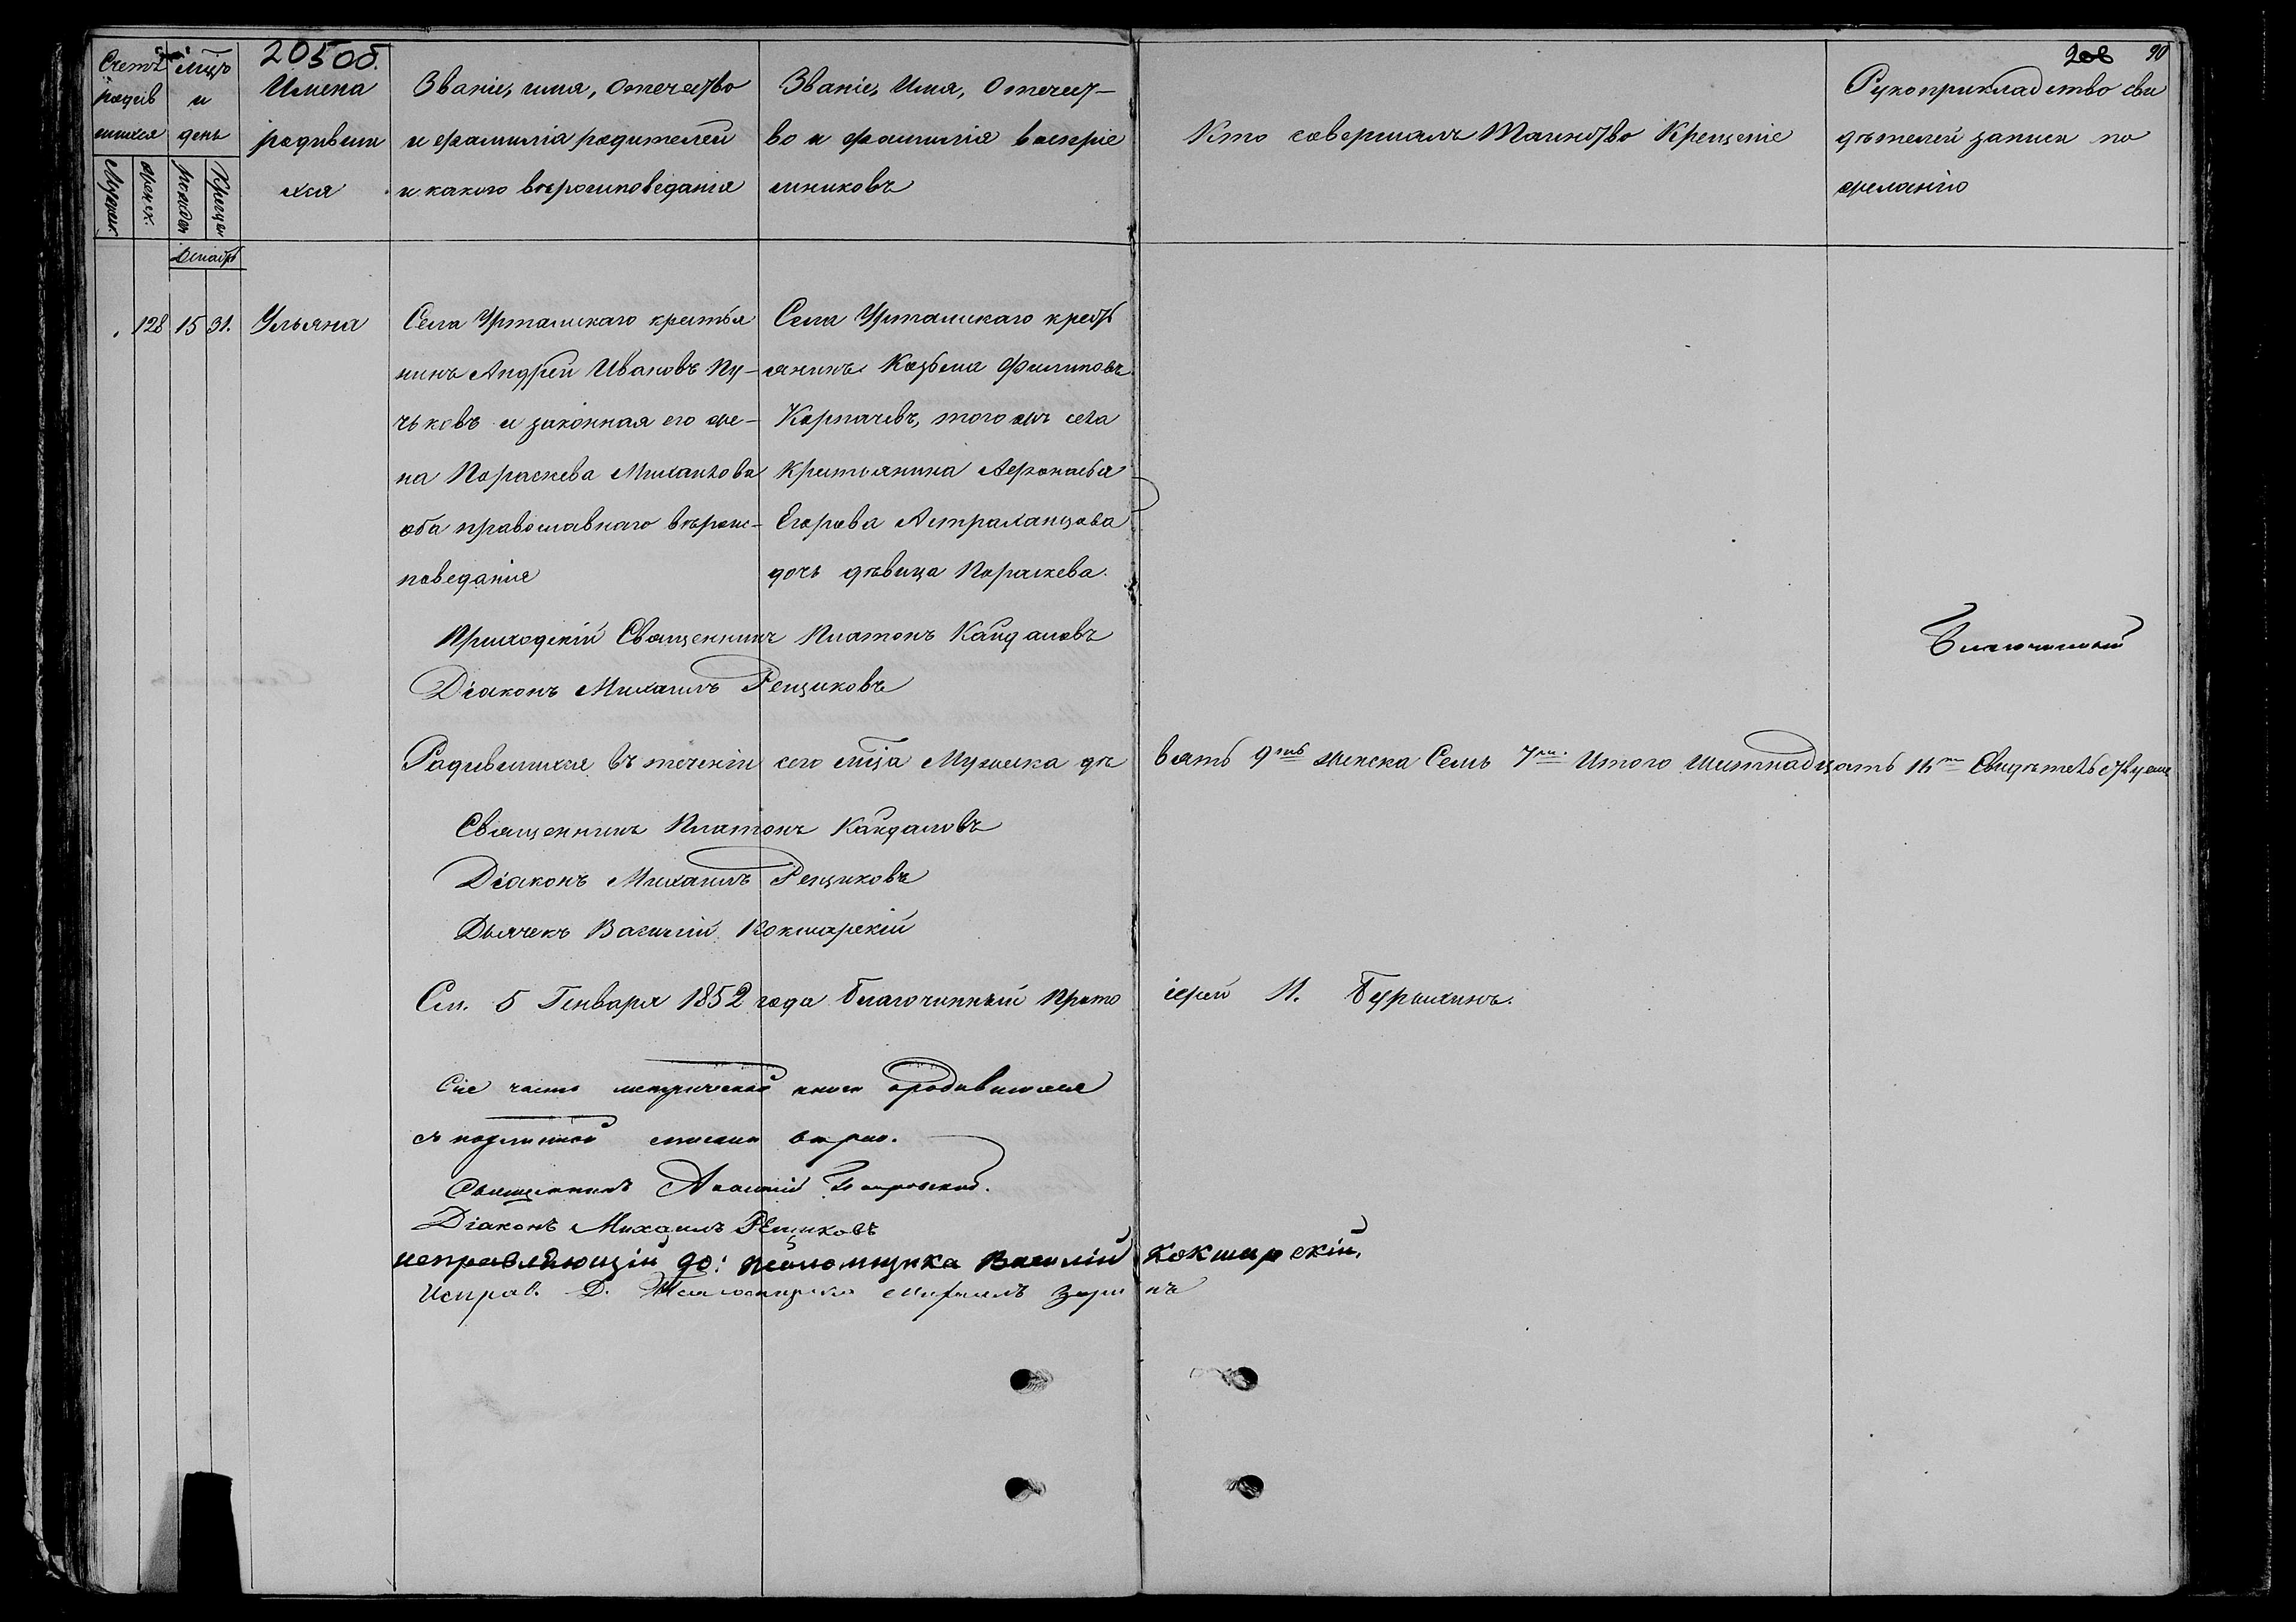 205 об.
208 90
Счетъ родив шихся
Мужеск. женск.
мц҃ъ и день
рожден Крещен
Имена родивши хся
Званіе, имя, отечество и фамилія родителей и какого вѣроисповеданія
Званіе, Имя, Отечест- во и фамилія воспріе мниковъ
Кто совершалъ Таинство Крещеніе
Рукоприкладство сви дѣтелей записи по желанію
Декабрь
128 15 31. Ульяна
Села Урталискаго крестья
нинъ Андрей Ивановъ Пу-
чьковъ и законная его же-
на Параскева Михаилова
оба православнаго вѣроис-
поведанія
Села Урталискаго кресть
янинъ Козьма Филиповъ
Карпачевъ, того жъ села
крестьянина Афонасья
Егорова Астраханцова
дочь дѣвица Параскева.
Приходскій Священникъ Платонъ Кайдаловъ
Благочинный
Діаконъ Михаилъ Рещиковъ
Родившихся въ теченіи сего мц҃а Мужеска де вять 9ть женска Семь 7мь. Итого шестнадцать 16ть Свидѣтельствуемъ
Священникъ Платонъ Кайдаловъ
Діаконъ Михаилъ Рещиковъ
Дьячекъ Василій Кокшарскій
См. 5 Генваря 1852 года благочинный Прото іерей П. Бурыхинъ.
Сія часть метрической книги о родившихся
съ подлинной списана вѣрно.
Священникъ
Діаконъ Михаилъ Рещиковъ
исправляющій до: псаломщика Василій Кокшарскій.
Исправ. Д. Псаломщика